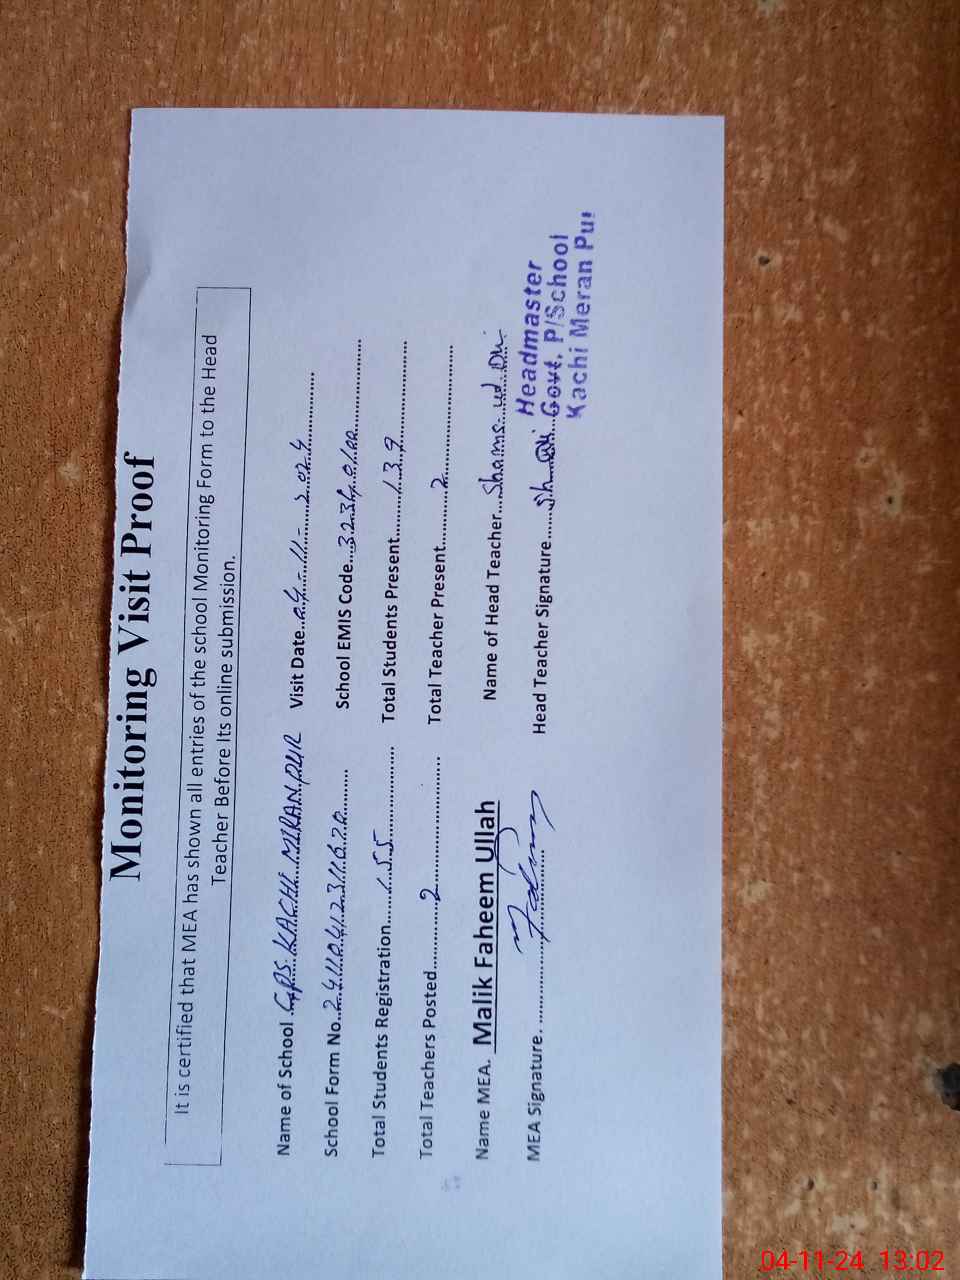 Monitoring Visit Proof
It is certified that MEA has shown all entries of the school Monitoring Form to the Head
Teacher Before Its online submission.
Name of School GPS KACHI MIRAN PUR Visit Date 04-11-2024
School Form No. School EMIS Code
Total Students Registration 155 Total Students Present 139
Total Teachers Posted 2 Total Teacher Present 2
Name MEA. Malik Faheem Ullah Name of Head Teacher Shams ud Din
MEA Signature. Head Teacher Signature
Headmaster
Govt. P/School
Kachi Meran Pur
04-11-24 13:02